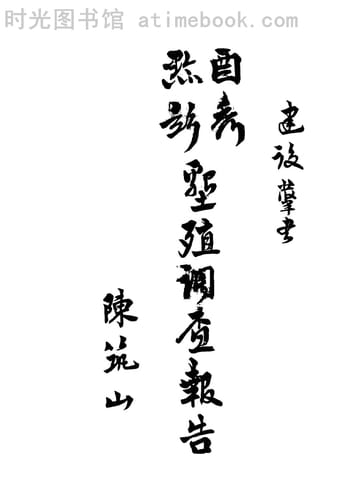 时光图书馆 - atimebook.com
建設叢書
酉秀
黔彭
墾殖調查報告
陳筑山